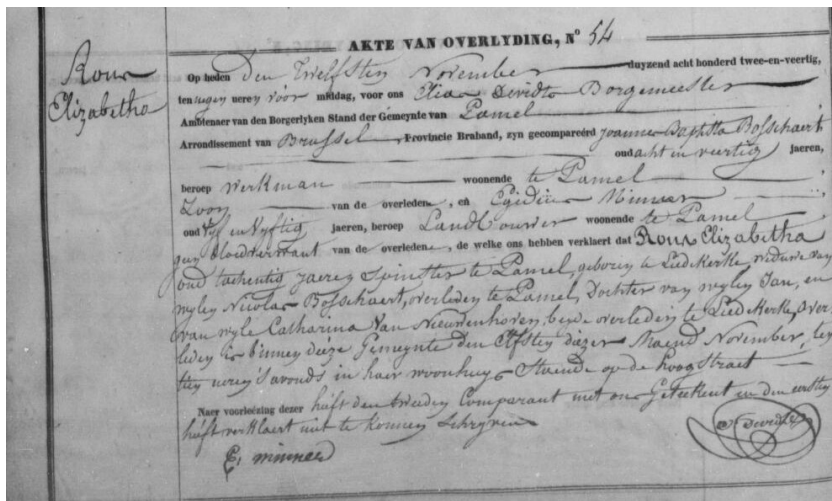 AKTE VAN OVERLYDING, Nº 54
Roux
Elizabetha
Op heden Den Twelfsten November duyzend acht honderd twee-en-veertig,
ten negen ueren vóór middag, voor ons Elias Devidts Borgemeester
Ambtenaer van den Borgerlyken Stand der Gemeynte van Pamel
Arrondissement van Brussel Provincie Braband, zyn gecompareérd Joannes Baptista Bosschaert
oud acht en veertig jaeren,
beroep Werkman woonende te Pamel
Zoon van de overledene, en Egidius Minner
oud vyf en vyftig jaeren, beroep Landbouwer woonende te Pamel
geen bloedverwant van de overledene, de welke ons hebben verklaert dat Roux Elizabetha
oud tachentig jaeren Spinster te Pamel, geboren te Liedekerke, weduwe van
wylen Nicolas Bosschaert, overleden te Pamel, Dochter van wylen Jan, en
van wyle Catharina Van Nieuwenhoven, beyde overleden te Liedekerke, Over-
leden is binnen dèeze Gemeynte den Elfsten dèezer Maend November, ten
tien ueren 's avonds in haer woonhuys Staende op de hoogstraet
Naer voorleézing dezer heéft den tweeden Comparant met ons Geteekent en den eersten
heéft verklaert niet te konnen Schryven
E: minner
Devidts